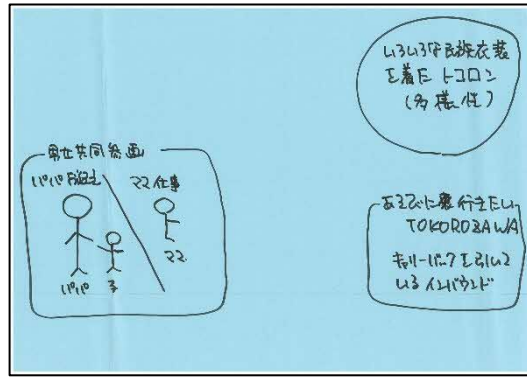 いろいろな民族衣装
を着た トコロン
(多様性)
男女共同参画
パパ
ママ仕事
パパ
子
ママ
あそびに 行きたい
TOKOROZAWA
キャリーバックを引いて
いる インバウンド